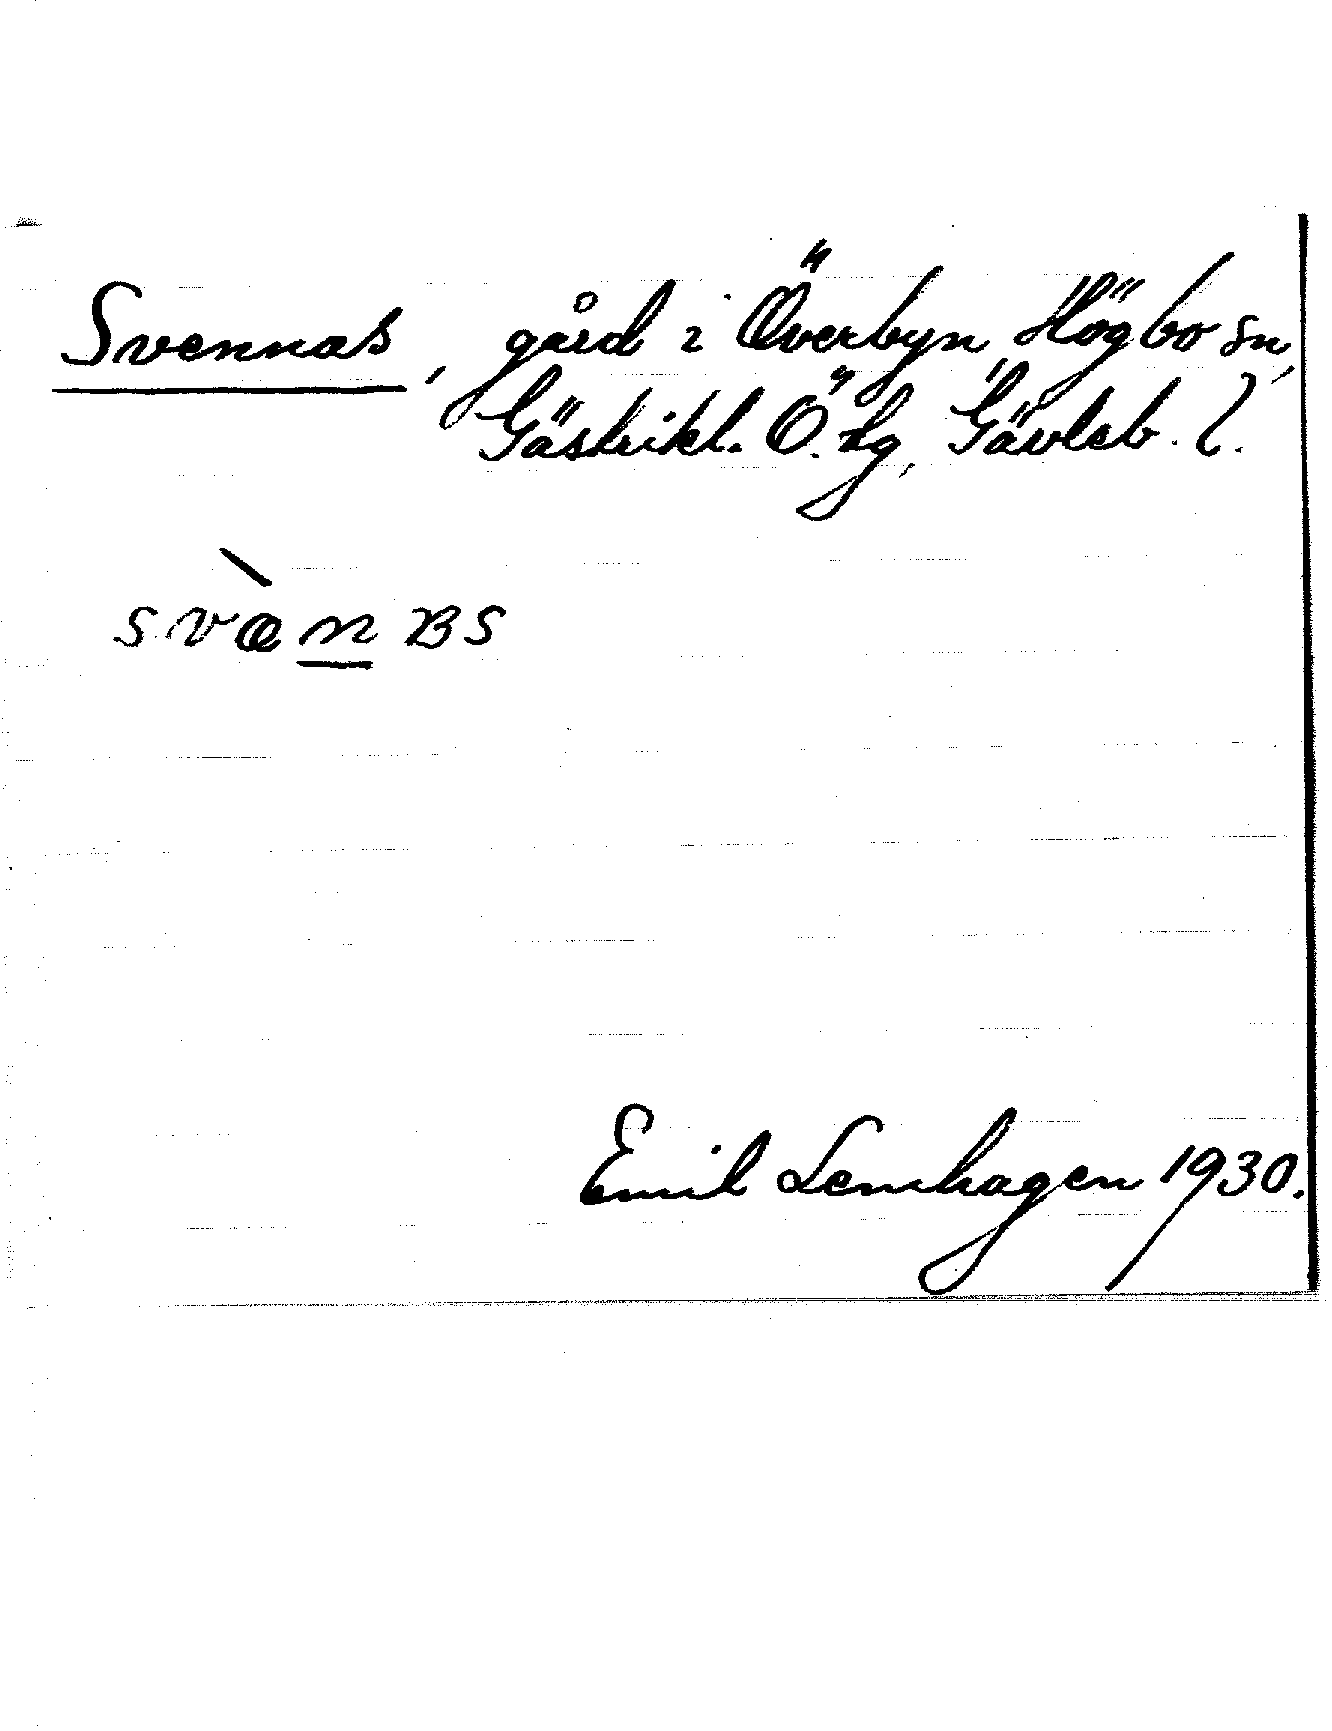 Svennas, gård i Överbyn, Högbo sn,
Gästrikl. Ö. hg, Gävleb. l.
svæ̀n̲ʙs
Emil Lenhagen 1930.